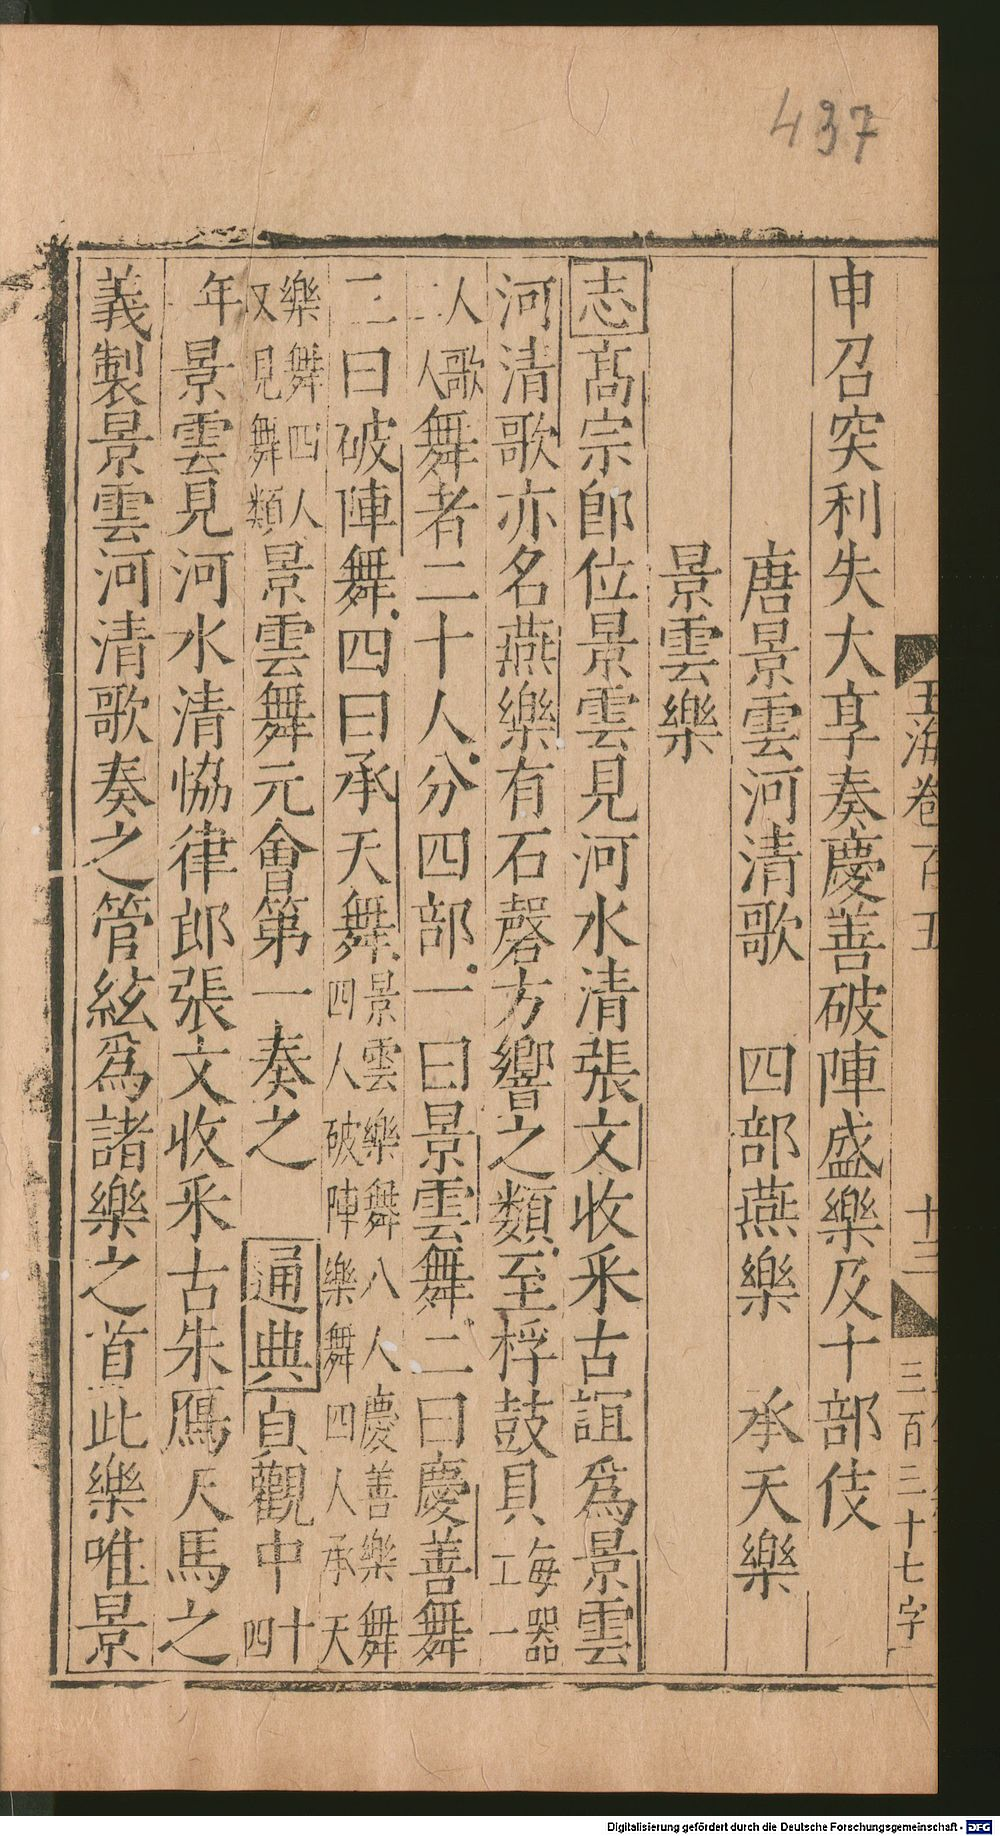 437
玉海卷百五
十三
三百三十七字
申召突利失大享奏慶善破陣盛樂及十部伎
唐景雲河清歌 四部燕樂 承天樂
景雲樂
志高宗即位景雲見河水清張文收采古誼爲景雲
河清歌亦名燕樂有石磬方響之類至桴鼓貝每器工一
人歌二人舞者二十人分四部一曰景雲舞二曰慶善舞
三曰破陣舞四曰承天舞景雲樂舞八人慶善樂舞四人破陣樂舞四人承天
樂舞四人又見舞類景雲舞元會第一奏之 通典貞觀中十四
年景雲見河水清協律郎張文收采古朱鴈天馬之
義製景雲河清歌奏之管絃爲諸樂之首此樂唯景
Digitalisierung gefördert durch die Deutsche Forschungsgemeinschaft - DFG